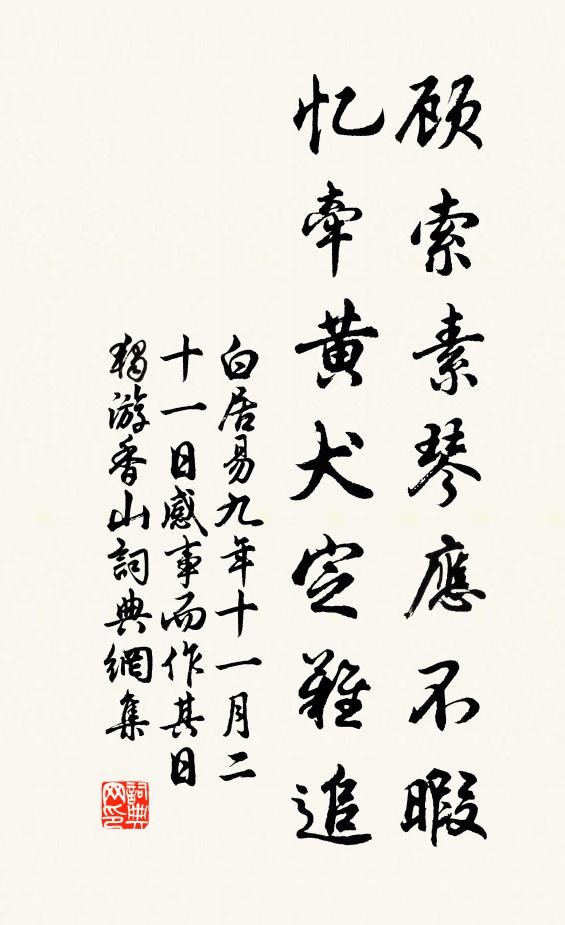 顾索素琴應不暇
忆牵黄犬定难追
白居易九年十一月二
十一日感事而作其日
獨游香山詞典網集
詞典
网印